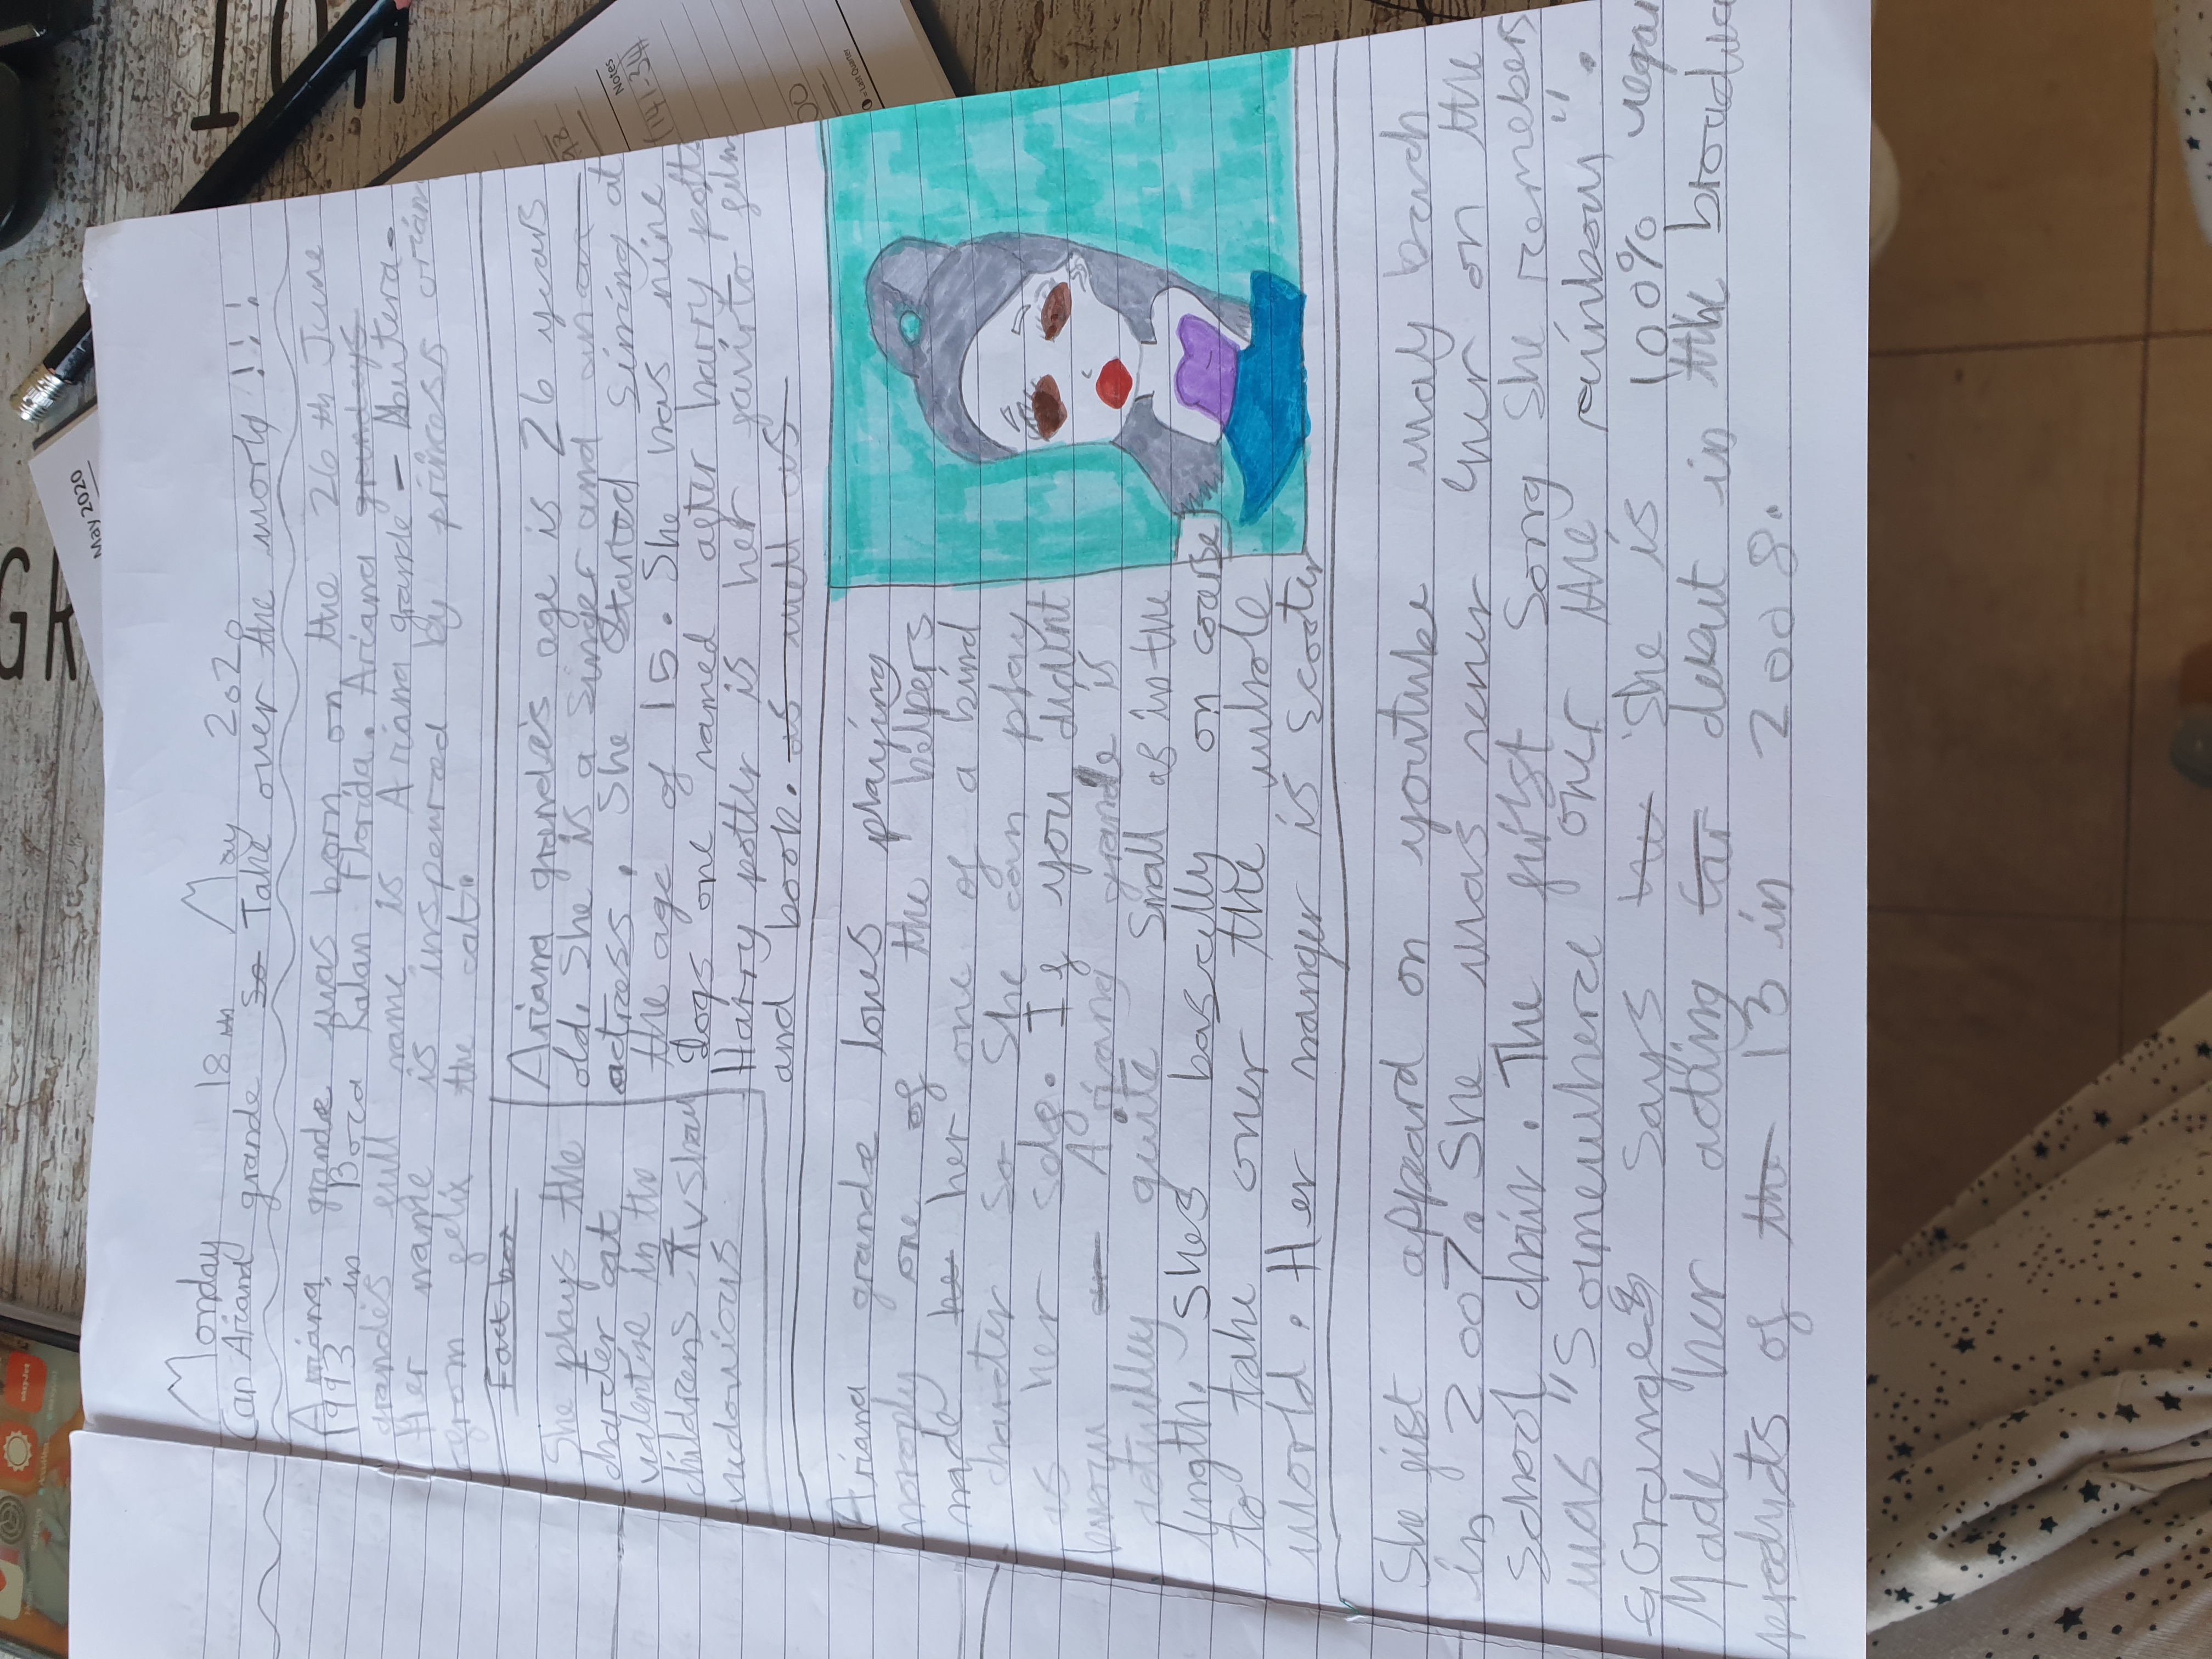 Monday 18th May 2020
Can Ariand grande so Take over the world!!!
Ariana grande was born on the 26th June
1993 in Boca Ratan Florida. Ariand grandeys
grandes full name is Ariana grande - Butera.
Her name is inspeured by princess oriana
from felix the cat.
Fact box
She plays the
charater cat
valentine in the
childrens Tv show
victorious
Ariana grande's age is 26 years
old. She is a singer and an a
actress. She started siming at
the age of 15. She was nine
Dogs one named after harry potter
Harry potter is her favirto film
and book. is well as
Ariand grande loves playing
moroply one of the helpers
made her her one of a kind
charater so she can play
as her selg. If you didint
know Ariang grande is
actually quite small as in the
length. Shes bascilly on coarse
to take over the whole
world. Her manger is scooter
She fist appeard on youtube way back
in 2007. She was seur Guer on the
School choir. The first song she remebers
was "Somewhere over the rainbow".
Grounge says she is 100% vegan
Made her acting debut in the broadway
products of 13 in 2008.
May 2020
Notes
= Last Quarter